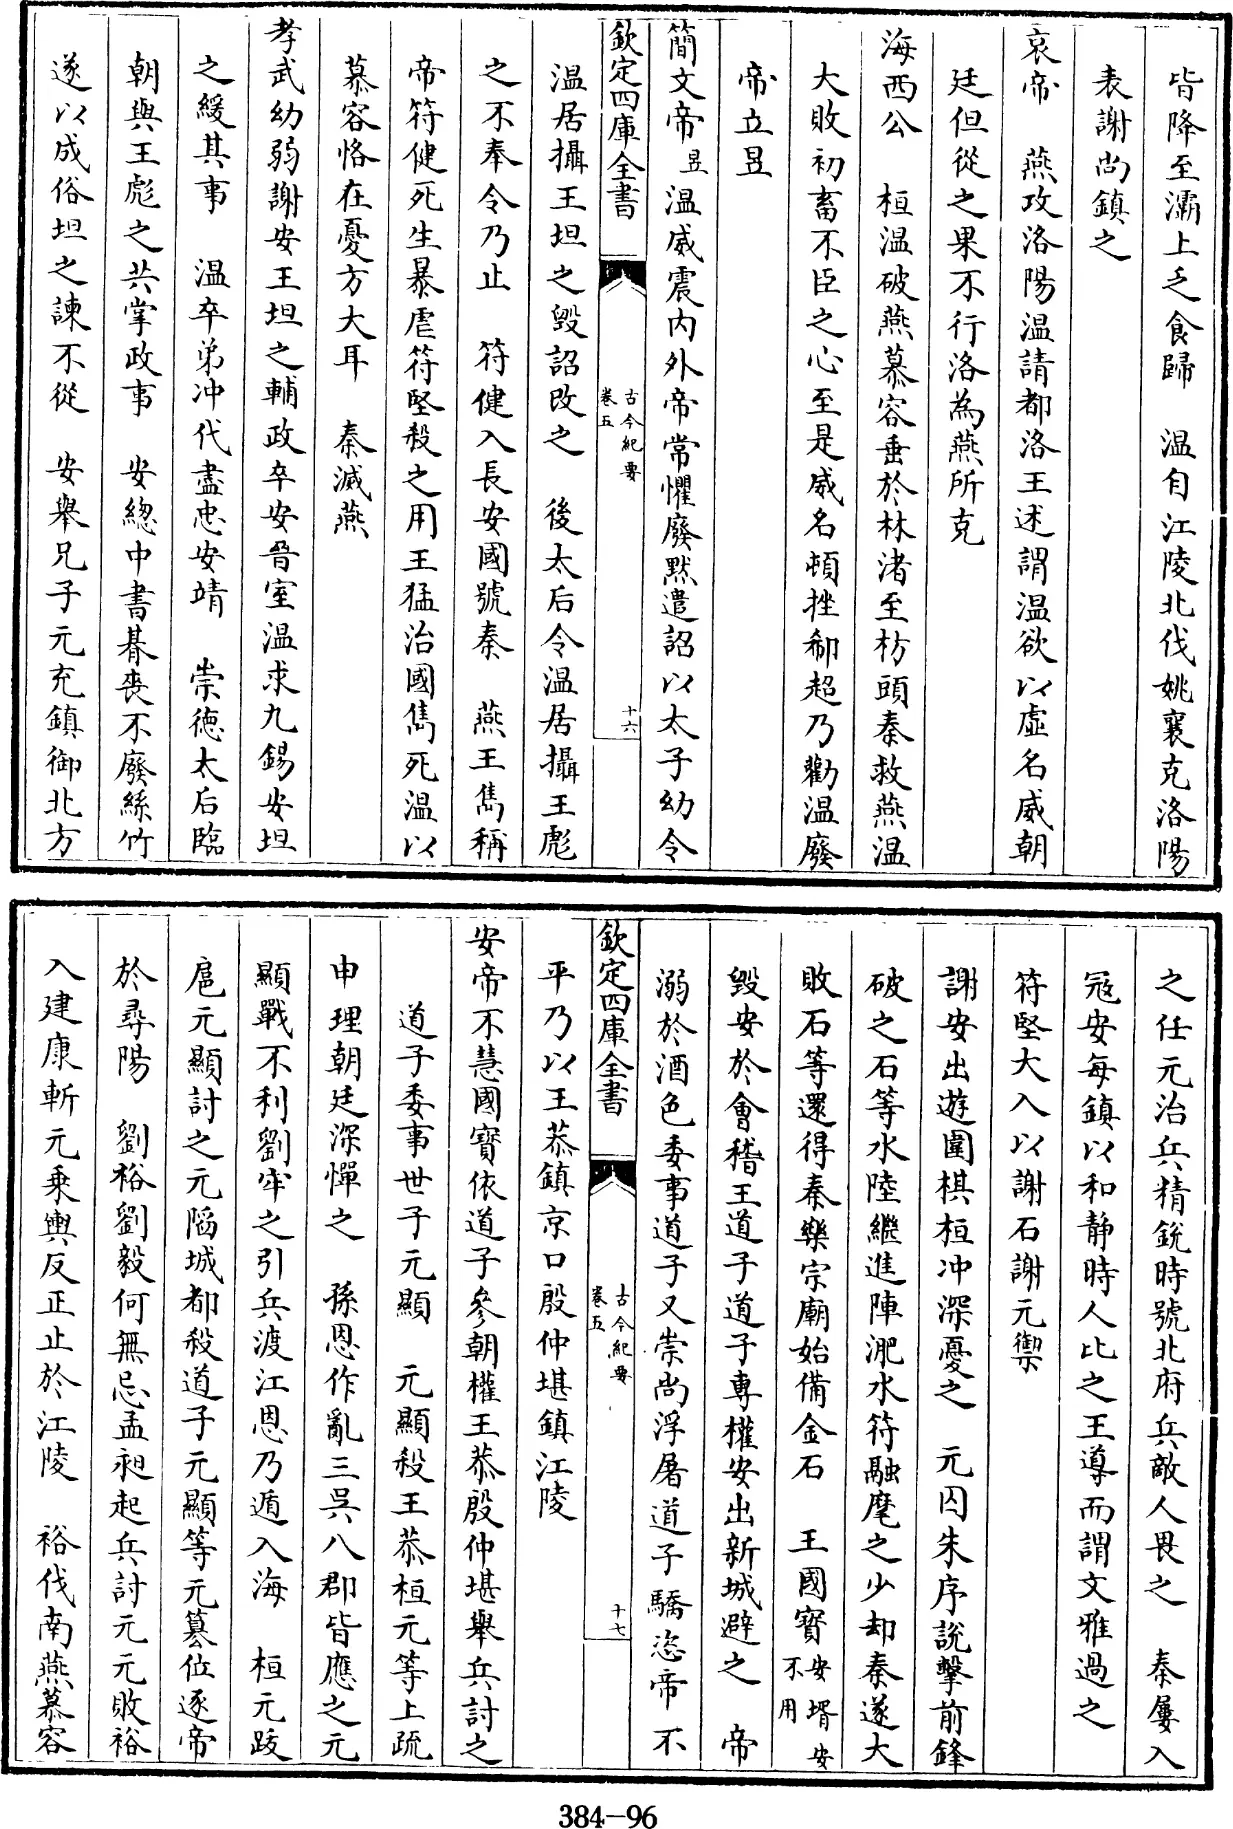 皆降至灞上乏食歸　温自江陵北伐姚襄克洛陽
表謝尚鎮之
哀帝　燕攻洛陽温請都洛王述謂温欲以虛名威朝
廷但從之果不行洛為燕所克
海西公　桓温破燕慕容垂於林渚至枋頭秦救燕温
大敗初畜不臣之心至是威名頓挫郗超乃勸温廢
帝立昱
簡文帝昱温威震内外帝常懼廢黙遣詔以太子幼令
欽定四庫全書
古今紀要
卷五
十六
温居攝王坦之毀詔改之　後太后令温居攝王彪
之不奉令乃止　符健入長安國號秦　燕王雋稱
帝符健死生暴虐符堅殺之用王猛治國雋死温以
慕容恪在憂方大耳　秦滅燕
孝武幼弱謝安王坦之輔政卒安晉室温求九錫安坦
之緩其事　温卒弟冲代盡忠安靖　崇德太后臨
朝與王彪之共掌政事　安總中書朞喪不廢絲竹
遂以成俗坦之諫不從　安舉兄子元充鎮御北方
之任元治兵精銳時號北府兵敵人畏之　秦屢入
冦安每鎮以和静時人比之王導而謂文雅過之
符堅大入以謝石謝元禦
謝安出遊圍棋桓冲深憂之　元囚朱序說擊前鋒
破之石等水陸繼進陣淝水符融麾之少却秦遂大
敗石等還得秦樂宗廟始備金石　王國寳安壻安不用
毀安於會稽王道子道子專權安出新城避之　帝
溺於酒色委事道子又崇尚浮屠道子驕恣帝不
欽定四庫全書
古今紀要
卷五
十七
平乃以王恭鎮京口殷仲堪鎮江陵
安帝不慧國寳依道子參朝權王恭殷仲堪舉兵討之
道子委事世子元顯　元顯殺王恭桓元等上疏
申理朝廷深憚之　孫恩作亂三吳八郡皆應之元
顯戰不利劉牢之引兵渡江恩乃遁入海　桓元跋
扈元顯討之元陷城都殺道子元顯等元篡位逐帝
於尋陽　劉裕劉毅何無忌孟昶起兵討元元敗裕
入建康斬元乘輿反正止於江陵　裕伐南燕慕容
384-96